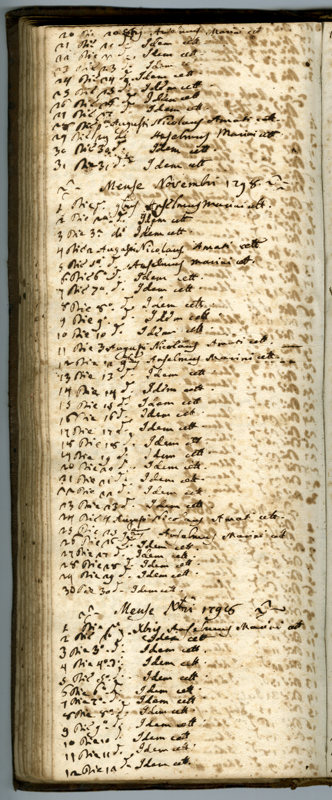 20 Die 20 8bris Anselmus Marini cett
21 Die 21 d. Idem cett.
22 Die 22 d. Idem cett.
23 Die 23 d. Idem cett.
24 Die 24 d. Idem cett.
25 Die 25 d. Idem cett
26 Die 26 d. Idem cett
27 Die 27
28 Die Augusti Nicolaus Amati cett.
29 Die 29 d. Anselmus Marini cett.
30 Die 30 d. Idem cett.
31 Die 31 d. Idem cett
Mense Novembri 1798.
1 Die 9bris Anselmus Marini cett.
2 Die 2a d. Idem cett.
3 Die 3a di Idem cett.
4 Die a Augusti Nicolaus Amati cett
5 Die 5a d. Anselmus Marini cett.
6 Die 6a d. Idem cett.
7 Die 7a d. Idem cett.
8 Die 8a d. Idem cett.
9 Die 9 d. Idem cett.
10 Die 10 d. Idem cett.
11 Die 3 Augusti Nicolaus Amati cett.
12 Die 12 Anselmus Marini cett.
13 Die 13 d. Idem cett
14 Die 14 d. Idem cett.
15 Die 15 d. Idem cett
16 Die 16 d. Idem cett.
17 Die 17 d. Idem cett
18 Die 18 d. Idem cett
19 Die 19 d. Idem cett
20 Die 20 d. Idem cett.
21 Die 21 d. Idem cett.
22 Die 22 d. Idem cett.
23 Die 23 d. Idem cett
24 Die Augusti Nicolaus Amati cett.
25 Die 25 Anselmus Marini cett.
26 Die 26 d. Idem cett.
27 Die 27 d. Idem cett.
28 Die 28 d. Idem cett.
29 Die 29 d. Idem cett.
30 Die 30 d. Idem cett.
Mense Xbri 1798
1 Die Xbris Anselmus Marini cett
2 Die d. Idem cett
3 Die 3a d. Idem cett
4 Die 4a d. Idem cett
5 Die 5a d. Idem cett
6 Die 6a d. Idem cett
7 Die 7a d. Idem cett
8 Die 8a d. Idem cett.
9 Die 9a d. Idem cett
10 Die 10 d. Idem cett
11 Die 11 d. Idem cett.
12 Die 12 d. Idem cett.